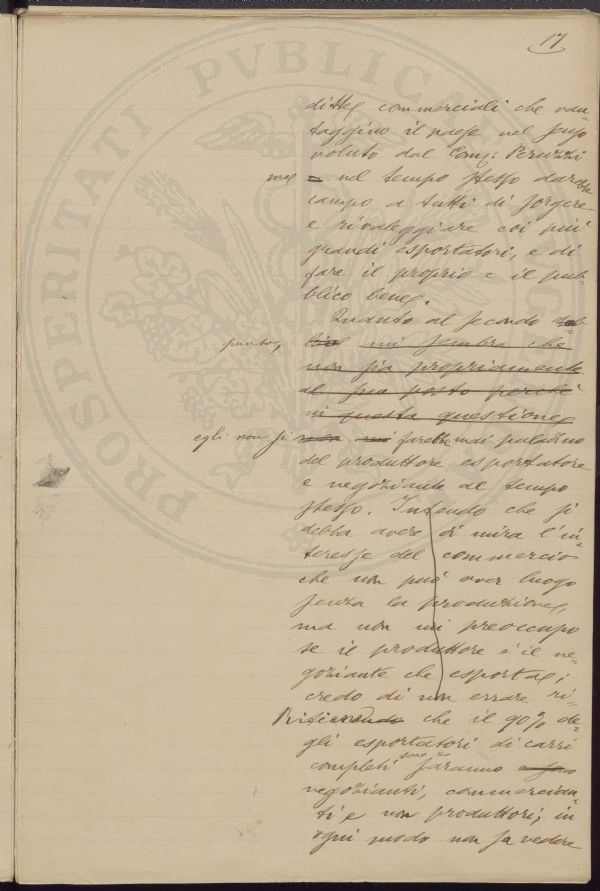 17
ditte commerciali che van-
taggino il paese nel senso
voluto dal Comm: Peruzzi
ma e nel tempo stesso darebbe
campo a tutti di sorgere
e rivaleggiare coi più
grandi esportatori, e di
fare il proprio e il pub-
blico bene.
Quanto al secondo
punto, mi sembra che
non sia propriamente
al suo posto perché
in questa questione
egli non si non mi farebbe mai paladino
del produttore esportatore
e negoziante al tempo
stesso. Intendo che si
debba avere di mira l'in-
teresse del commercio
che non può aver luogo
senza la produzione,
ma non mi preoccupo
se il produttore è il ne-
goziante che esporta;
credo di non errare ri-
Ritenendo che il 90% de-
gli esportatori di carri
completi sono e saranno
negozianti, commercian-
ti e non produttori; in
ogni modo non sa vedere
PROSPERITATI PVBLICAE